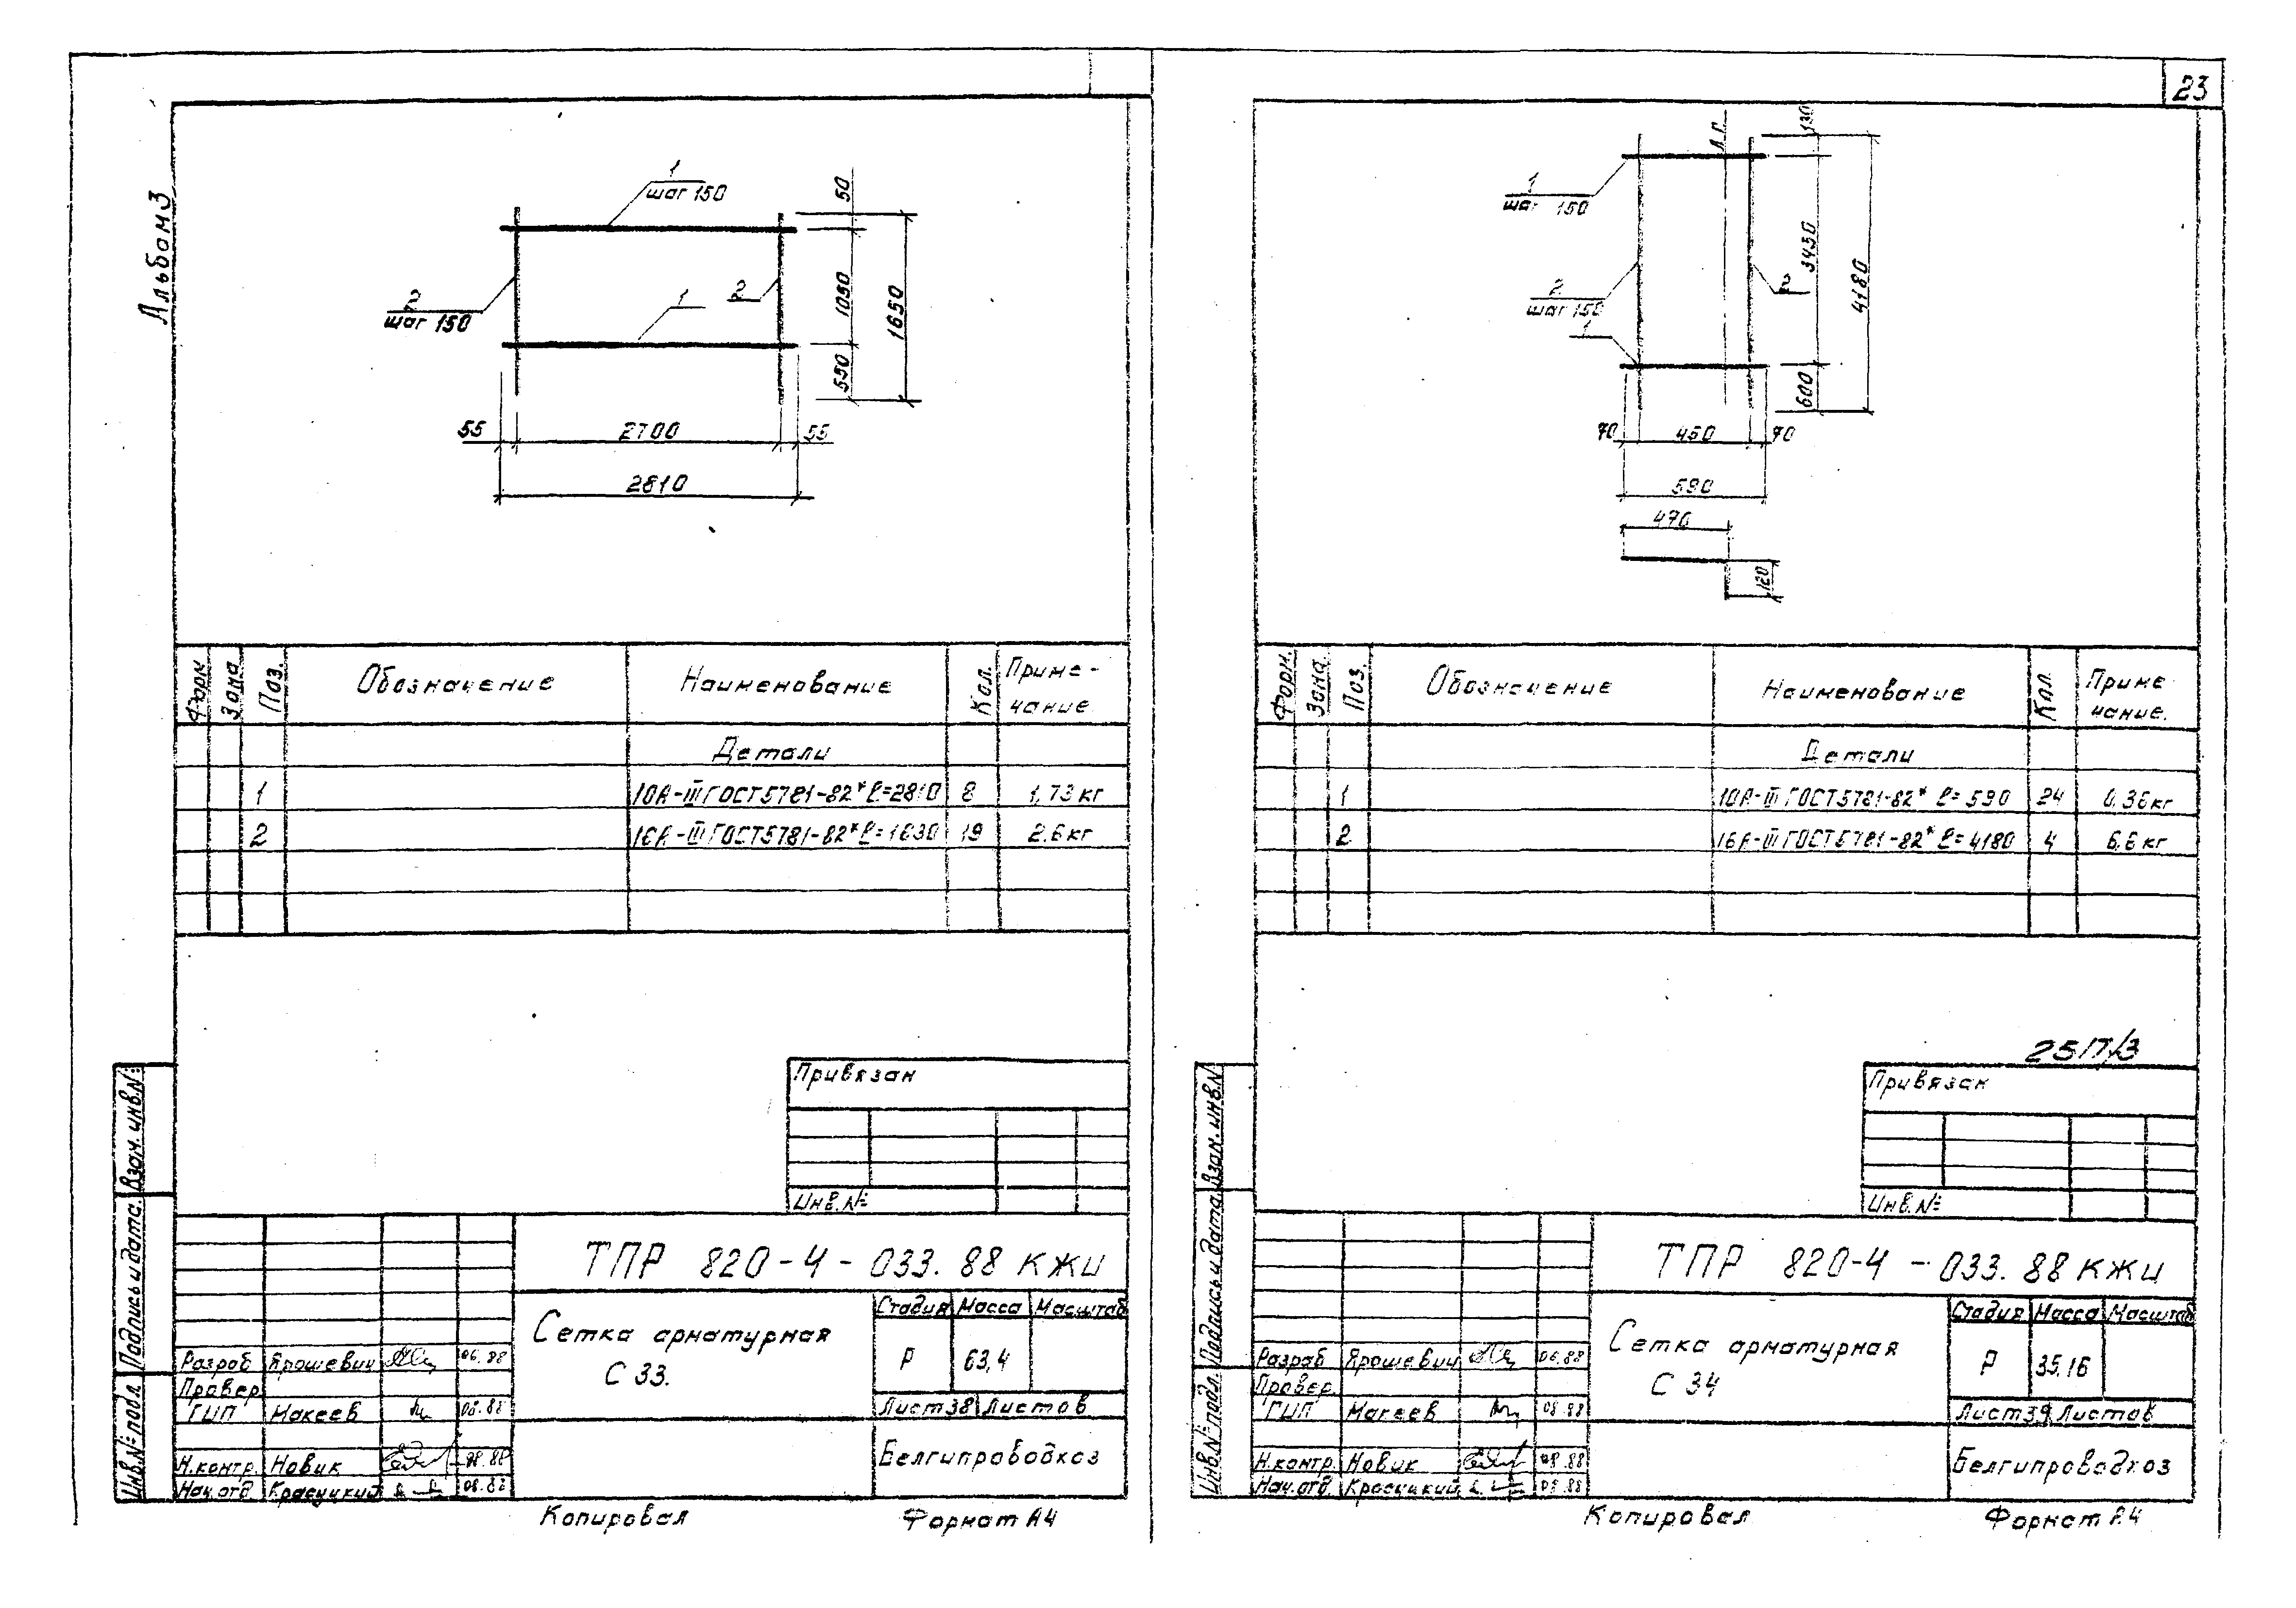 Альбом 3
1
шаг 150
2
шаг 150
1
2
50
1050
550
1650
55
2700
55
2810
Форм
Зона
Поз.
Обозначение
Наименование
Кол.
Приме-
чание
Детали
1 10А-III ГОСТ5781-82* ℓ=2810 8 1,73кг
2 16А-III ГОСТ5781-82* ℓ=1630 19 2.6кг
Привязан
Инв.№
ТПР 820-4-033.88 КЖИ
Сетка арматурная
С 33.
Стадия Масса Масштаб
Р 63,4
Лист 38 Листов
Белгипроводхоз
Разраб Ярошевич 06.88
Провер
ГИП Макеев 08.88
Н.контр. Новик 08.88
Нач.отд. Красуцкий 08.88
Взам.инв.№
Подпись и дата.
Инв.№ подл.
Копировал
Формат А4
23
1
шаг 150
2
шаг 150
1
2
Л.Г.
130
3450
600
4180
70
450
70
590
470
120
Форм.
Зона
Поз.
Обозначение
Наименование
Кол.
Приме
чание.
Детали
1 10А-III ГОСТ5781-82* ℓ=590 24 0.36кг
2 16А-III ГОСТ5781-82* ℓ=4180 4 6,6кг
25П/3
Привязан
Инв.№
ТПР 820-4-033.88 КЖИ
Сетка арматурная
С 34
Стадия Масса Масштаб
Р 35.16
Лист 39 Листов
Белгипроводхоз
Разраб Ярошевич 06.88
Провер.
ГИП Макеев 08.88
Н.контр. Новик 08.88
Нач.отд. Красуцкий 08.88
Взам.инв.№
Подпись и дата
Инв.№ подл.
Копировал
Формат А4